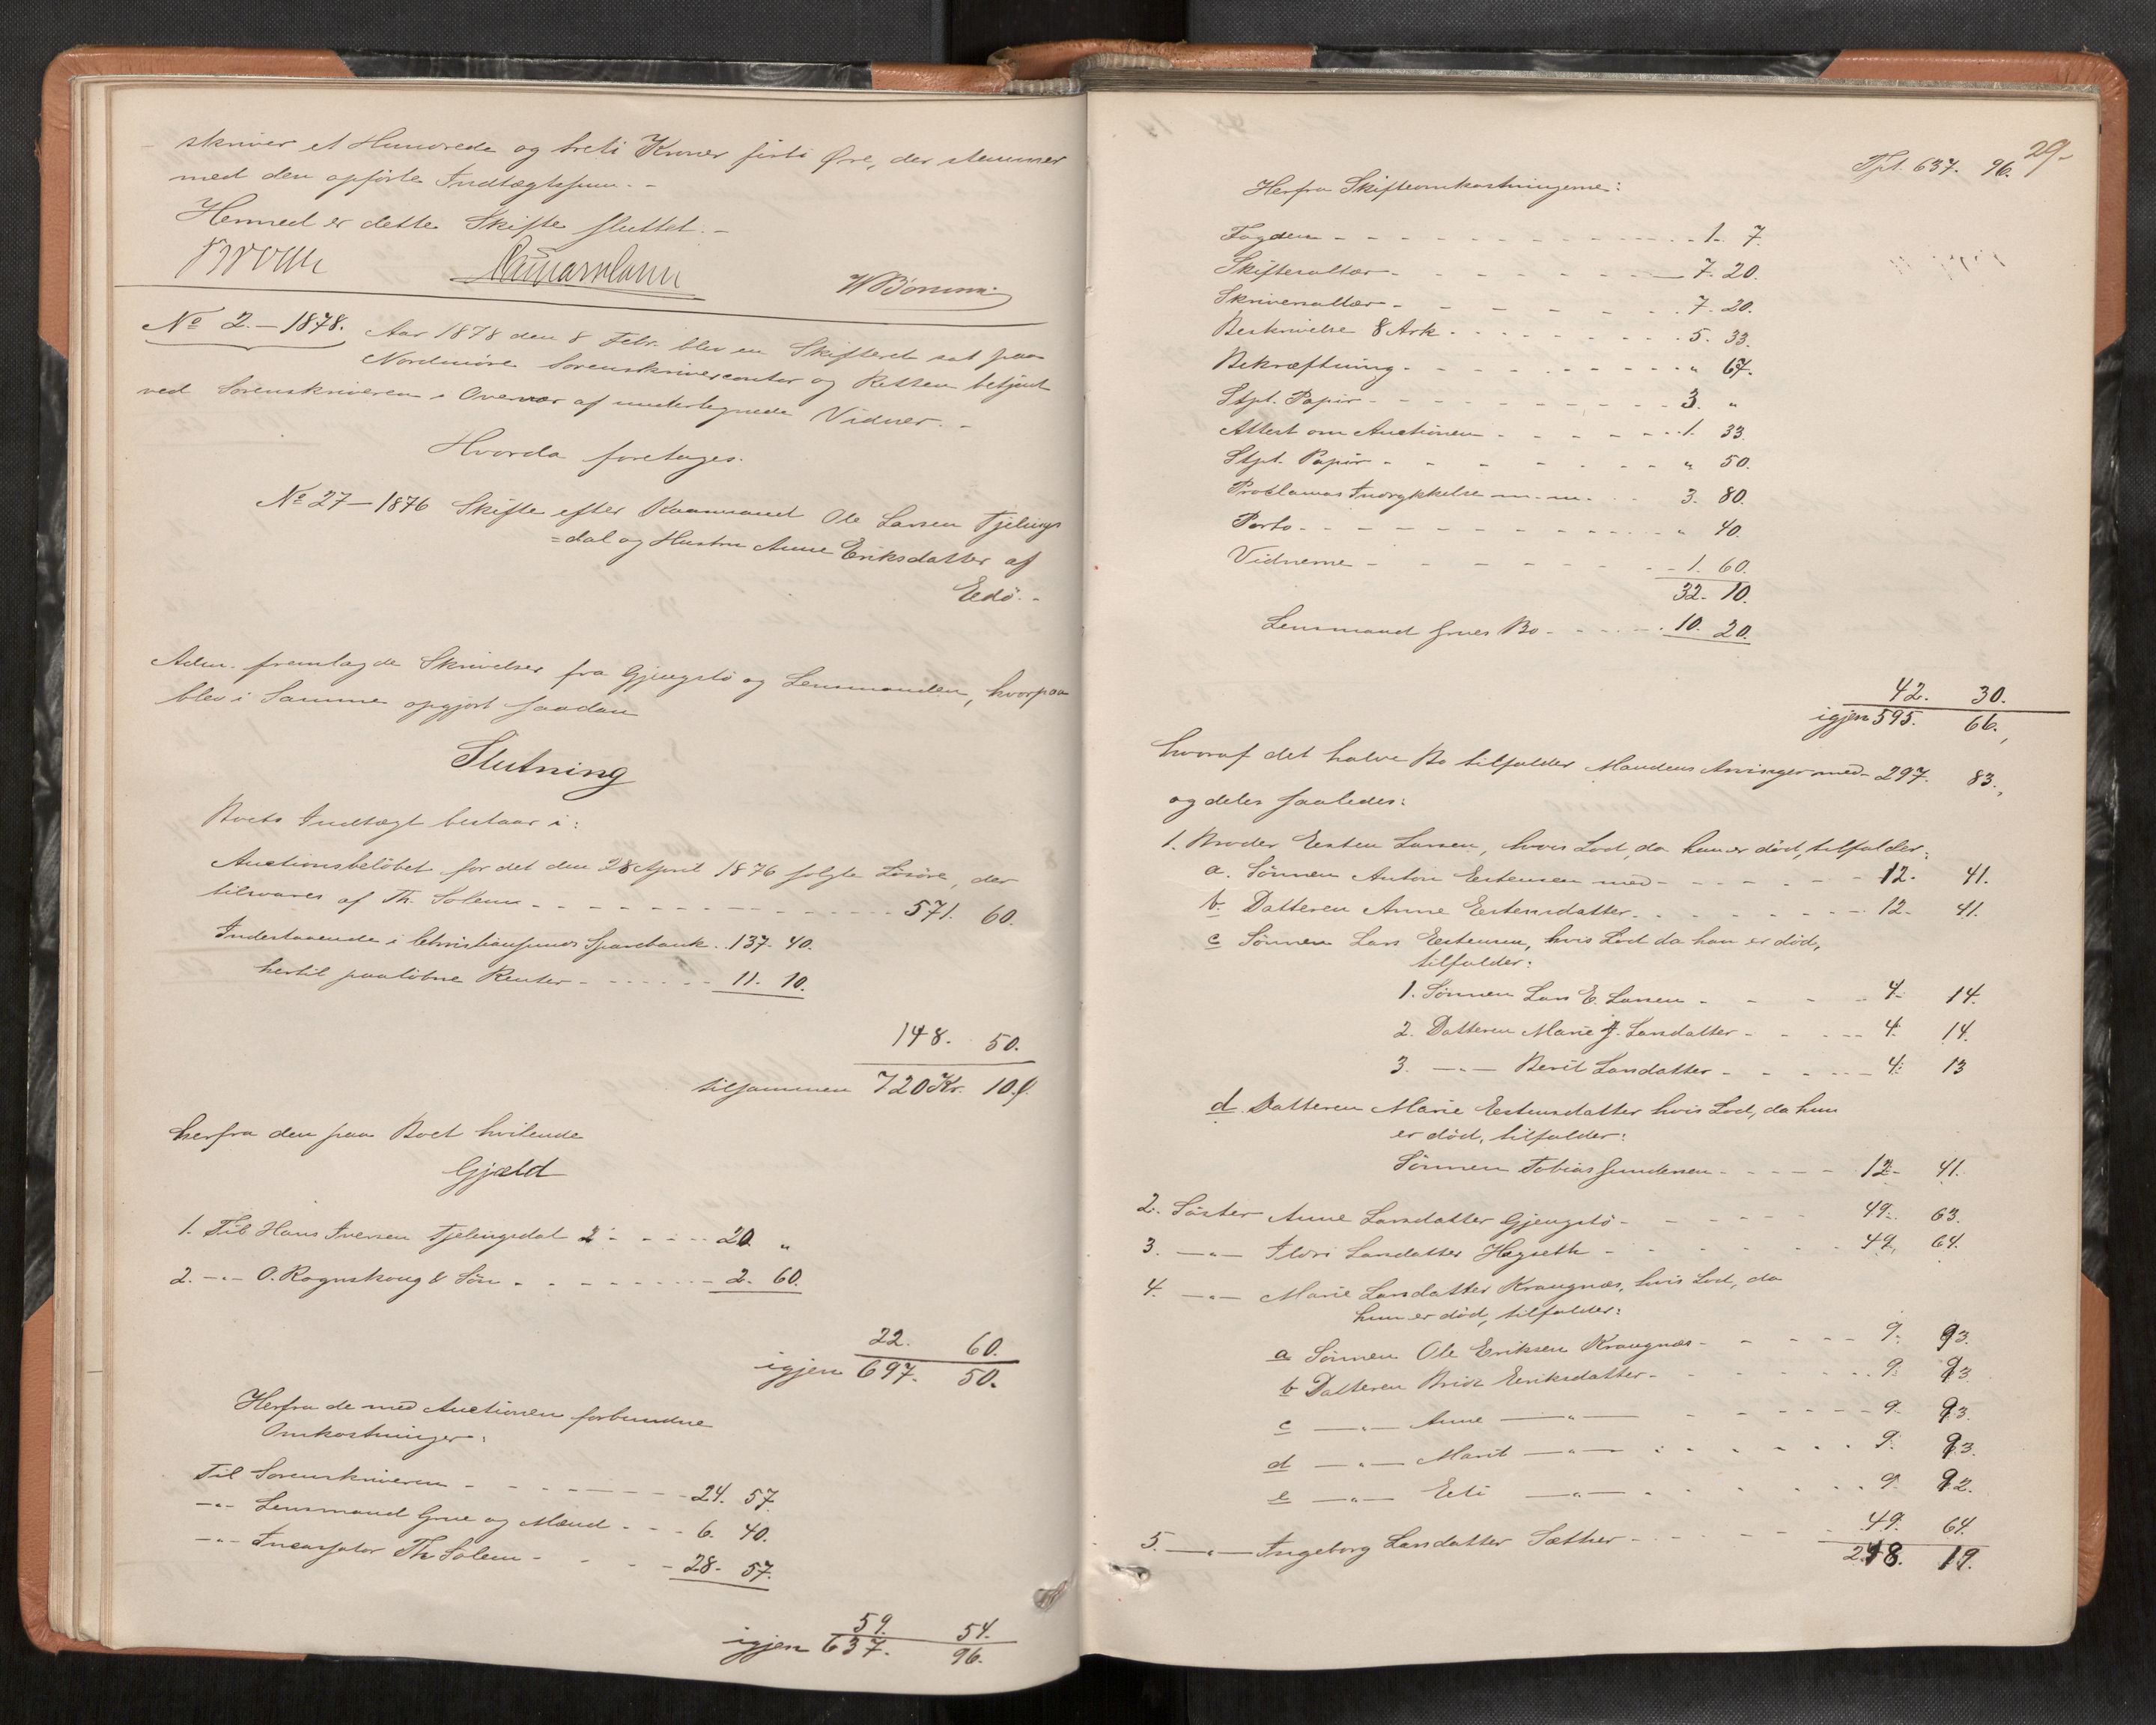 skriver et Hundrede og treti Kroner firti Øre, der stemmer
med den opførte Indtægtssum. -
Hermed er dette Skifte sluttet. -
No 2. - 1878. Aar 1878 den 8 Febr. blev en Skifteret sat paa
Nordmøre Sorenskrivercontor og Retten betjent
ved Sorenskriveren i Overvær af undertegnede Vidner. -
Hvorda foretoges.
No 27 - 1876 Skifte efter Kaarmand Ole Larsen Fjelings
=dal og Hustru Anne Eriksdatter af
Edø. -
Adm. fremlagde Skrivelser fra Gjengstø og Lensmanden, hvorpaa
blev i Samme opgjort saadan
Slutning
Boets Indtægt bestaar i:
Auctionsbeløbet for det den 28 April 1876 solgte Løsøre, der
tilsvares af Th. Solem - - - 571. 60.
Indestaaende i Christiansunds Sparebank. 137. 40.
hertil paaløbne Renter - - - 11. 10.
148. 50.
tilsammen 720 Kr. 10 ø.
herfra den paa Boet hvilende
Gjæld
1. Til Hans Iversen Fjelingsdal 2 - - - 20. "
2. -"- O. Rognskoug & Søn - - - 2. 60.
22. 60.
igjen 697. 50.
Herfra de med Auctionen forbundne
Omkostninger:
Til Sorenskriveren - - - 24. 57
-"- Lensmand Grue og Mænd - - - 6. 40.
-"- Incassator Th Solem - - - 28. 57.
59. 54.
igjen 637. 96.
29.
Tpt. 637. 96.
Herfra Skifteomkostningerne:
Fogden - - - 1. 7.
Skiftesallær - - - 7. 20.
Skriversallær - - - 7. 20.
Beskrivelse 8 Ark - - - 5. 33.
Bekræftning - - - " 67.
Stpt. Papir - - - 3. "
Attest om Auctionen - - - 1. 33.
Stpt. Papir - - - " 50.
Proclamas Indrykkelse m. m. - - 3. 80.
Porto - - - " 40.
Vidnerne - - - 1. 60.
32. 10.
Lensmand Grues Bo - - - 10. 20.
42. 30.
igjen 595. 66.
hvoraf det halve Bo tilfalder Mandens Arvinger med - 297. 83.
og deles saaledes:
1. Broder Eesten Larsen, hvis Lod, da han er død, tilfalder:
a. Sønnen Anton Eestensen med - - - 12. 41.
b. Datteren Anne Eestensdatter - - - 12. 41.
c Sønnen Lars Eestensen, hvis Lod da han er død,
tilfalder:
1. Sønnen Lars E. Larsen - - - 4. 14.
2. Datteren Marie J. Larsdatter - - - 4. 14.
3. -"- Berit Larsdatter - - - 4. 13
d. Datteren Marie Eestensdatter hvis Lod, da hun
er død, tilfalder:
Sønnen Tobias Gundersen - - - 12. 41.
2. Søster Anne Larsdatter Gjengstø - - - 49. 63.
3. -"- Ildri Larsdatter Hagseth - - - 49. 64.
4. -"- Marie Larsdatter Krangnæs, hvis Lod, da
hun er død, tilfalder:
a Sønnen Ole Eriksen Krangnæs - - - 9. 93.
b Datteren Brit Eriksdatter - - - 9. 93
c -"- Anne -"- - - - 9. 93.
d -"- Marit -"- - - - 9. 93.
e -"- Eli -"- - - - 9. 92.
5. -"- Ingeborg Larsdatter Sæther - - - 49. 64.
248. 19.